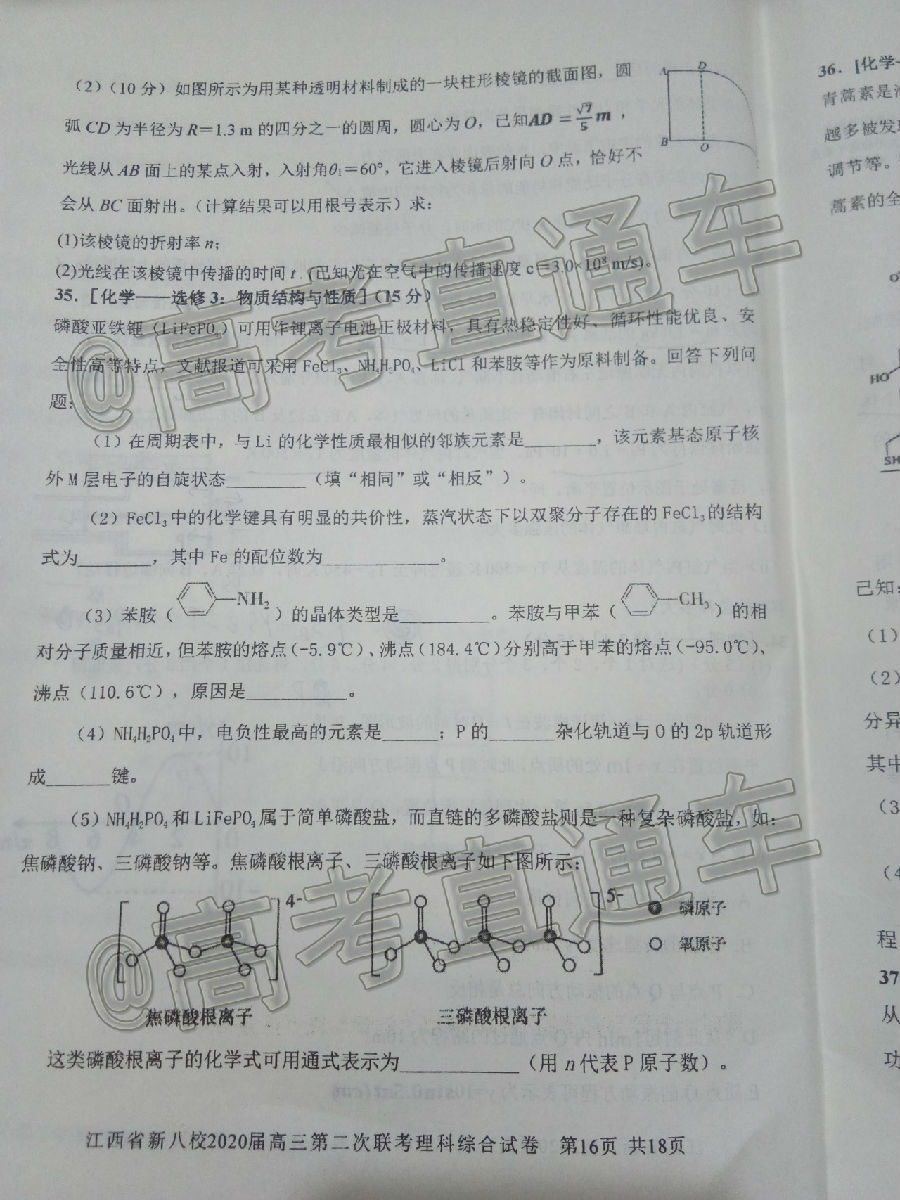 (2)(10分)如图所示为用某种透明材料制成的一块柱形棱镜的截面图,圆
弧CD为半径为R=1.3 m的四分之一的圆周,圆心为O,已知AD=√7/5 m,
光线从AB面上的某点入射,入射角θ₁=60°,它进入棱镜后射向O点,恰好不
会从BC面射出。(计算结果可以用根号表示)求:
A D
B O
(1)该棱镜的折射率n;
(2)光线在该棱镜中传播的时间t.(已知光在空气中的传播速度c=3.0×10⁸ m/s)。
35.[化学——选修3:物质结构与性质](15分)
磷酸亚铁锂(LiFePO₄)可用作锂离子电池正极材料,具有热稳定性好、循环性能优良、安
全性高等特点,文献报道可采用FeCl₃、NH₄H₂PO₄、LiCl和苯胺等作为原料制备。回答下列问
题:
(1)在周期表中,与Li的化学性质最相似的邻族元素是________,该元素基态原子核
外M层电子的自旋状态________(填“相同”或“相反”)。
(2)FeCl₃中的化学键具有明显的共价性,蒸汽状态下以双聚分子存在的FeCl₃的结构
式为________,其中Fe的配位数为____________。
(3)苯胺(—NH₂)的晶体类型是__________。苯胺与甲苯(—CH₃)的相
对分子质量相近,但苯胺的熔点(-5.9℃)、沸点(184.4℃)分别高于甲苯的熔点(-95.0℃)、
沸点(110.6℃),原因是___________。
(4)NH₄H₂PO₄中,电负性最高的元素是______;P的_______杂化轨道与O的2p轨道形
成_______键。
(5)NH₄H₂PO₄和LiFePO₄属于简单磷酸盐,而直链的多磷酸盐则是一种复杂磷酸盐,如:
焦磷酸钠、三磷酸钠等。焦磷酸根离子、三磷酸根离子如下图所示:
4-
5-
磷原子
氧原子
焦磷酸根离子
三磷酸根离子
这类磷酸根离子的化学式可用通式表示为____________(用n代表P原子数)。
江西省新八校2020届高三第二次联考理科综合试卷 第16页 共18页
@高考直通车
@高考直通车
36.[化学—
青蒿素是
越多被发现
调节等。
蒿素的全
HO
SH
己知:
(1)
(2)
分异
其中
(3
(4
程
37
从
功